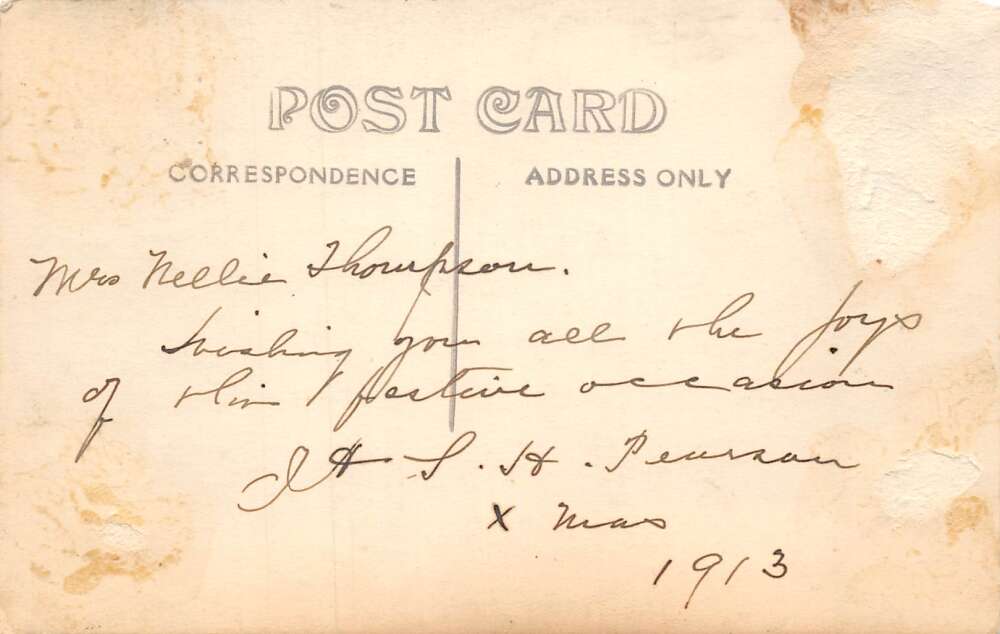 POST CARD
CORRESPONDENCE
ADDRESS ONLY
Mrs Nellie Thompson.
Wishing you all the Joys
of this festive occasion
J H S. H. Pearson
X mas
1913